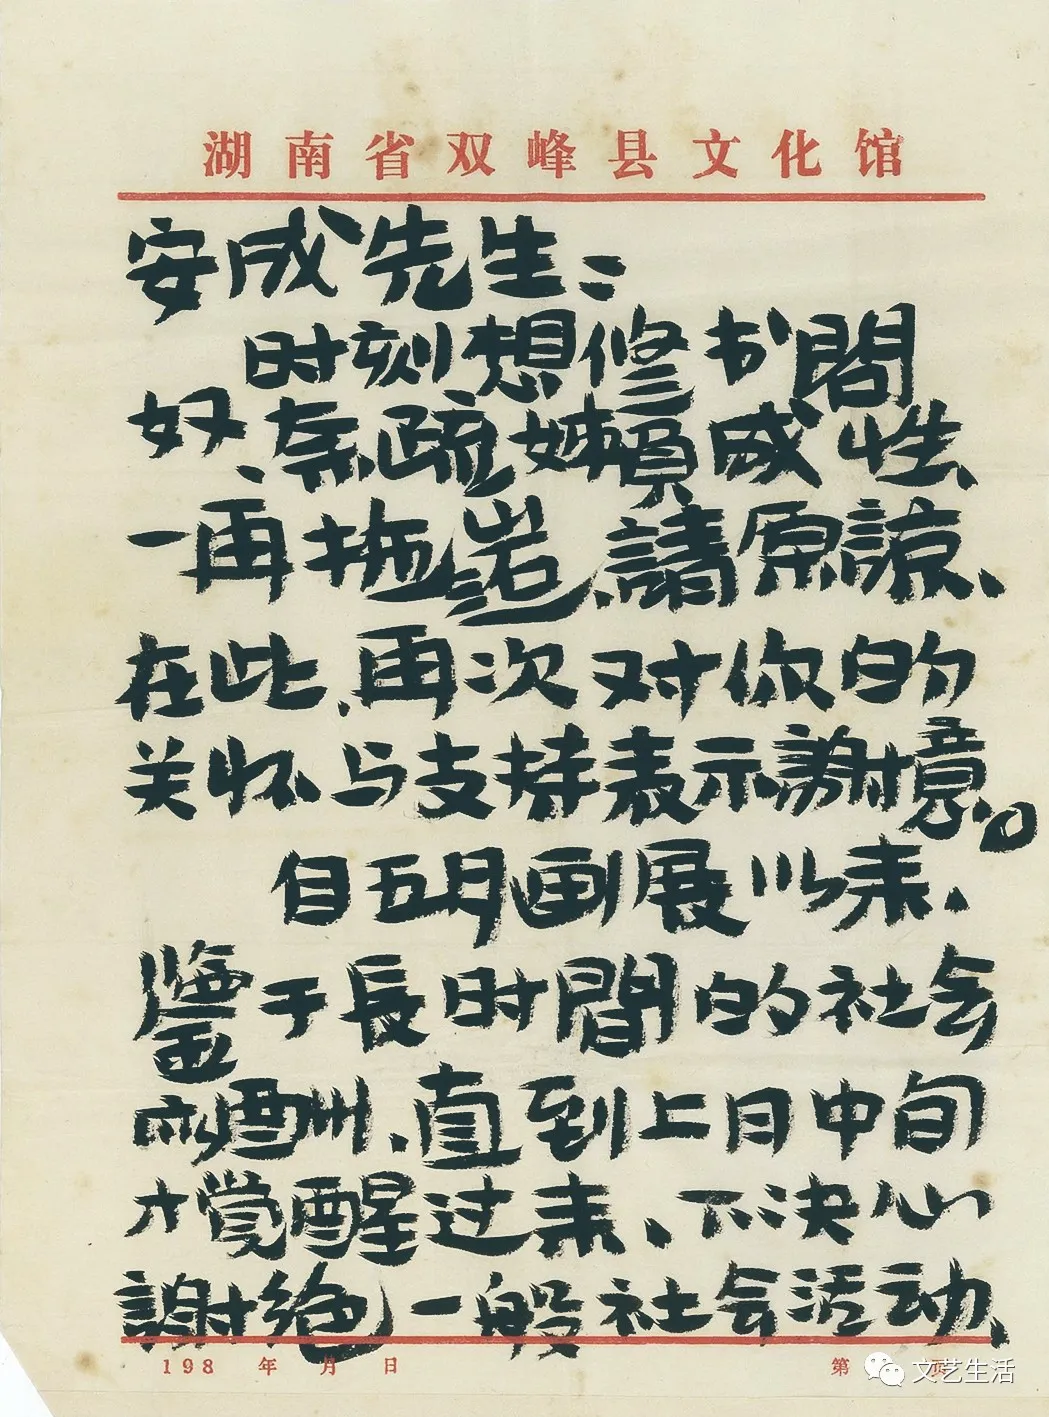 湖南省双峰县文化馆
安成先生：
时刻想修书問
好、奈疏嬾成性、
一再拖延、請原諒、
在此、再次对你的
关怀、与支持表示謝意。
自五月画展以来、
鑒于長时間的社会
应酬、直到上月中旬
才覺醒过来、下决心
謝绝一般社会活动、
198 年 月 日 第 页
文艺生活